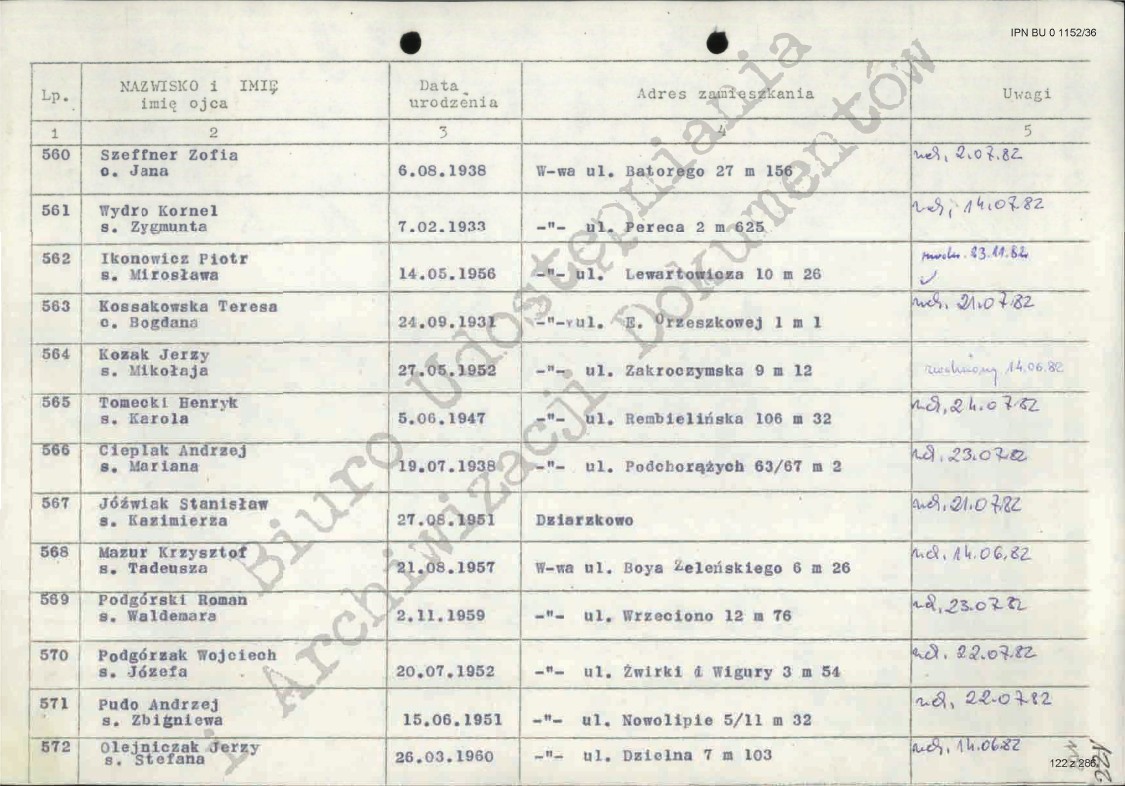 IPN BU 0 1152/36
Lp. NAZWISKO i IMIĘ imię ojca Data urodzenia Adres zamieszkania Uwagi
1 2 3 4 5
560 Szeffner Zofia
c. Jana 6.08.1938 W-wa ul. Batorego 27 m 156 zwl. 2.07.82
561 Wydro Kornel
s. Zygmunta 7.02.1933 -"- ul. Pereca 2 m 625 14.07.82
562 Ikonowicz Piotr
s. Mirosława 14.05.1956 -"- ul. Lewartowicza 10 m 26 23.11.82
563 Kossakowska Teresa
c. Bogdana 24.09.1931 -"- ul. E. Orzeszkowej 1 m 1 21.07.82
564 Kozak Jerzy
s. Mikołaja 27.05.1952 -"- ul. Zakroczymska 9 m 12 14.06.82
565 Tomecki Henryk
s. Karola 5.06.1947 -"- ul. Rembielińska 106 m 32 .07.82
566 Cieplak Andrzej
s. Mariana 19.07.1938 -"- ul. Podchorążych 63/67 m 2 23.07.82
567 Jóźwiak Stanisław
s. Kazimierza 27.08.1951 Dziarzkowo 21.07.82
568 Mazur Krzysztof
s. Tadeusza 21.08.1957 W-wa ul. Boya Żeleńskiego 6 m 26 14.06.82
569 Podgórski Roman
s. Waldemara 2.11.1959 -"- ul. Wrzeciono 12 m 76 23.07.82
570 Podgórzak Wojciech
s. Józefa 20.07.1952 -"- ul. Żwirki i Wigury 3 m 54 22.07.82
571 Pudo Andrzej
s. Zbigniewa 15.06.1951 -"- ul. Nowolipie 5/11 m 32 22.07.82
572 Olejniczak Jerzy
s. Stefana 26.03.1960 -"- ul. Dzielna 7 m 103 14.06.82
122 z 286
122
Biuro Udostępniania
i Archiwizacji Dokumentów